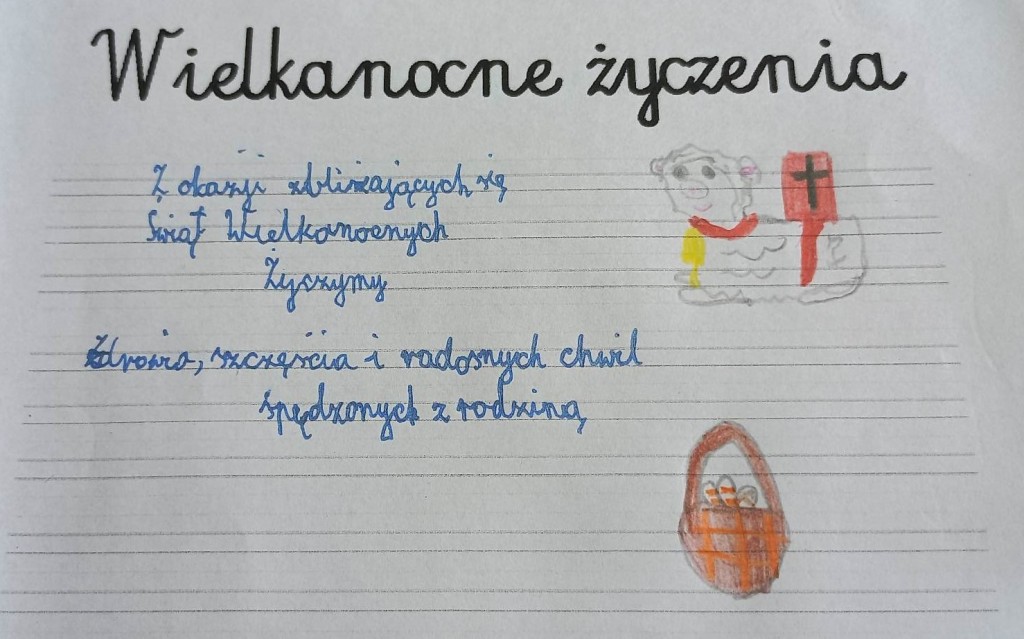 Wielkanocne życzenia
Z okazji zbliżających się
Świąt Wielkanocnych
Życzymy
Zdrowia, szczęścia i radosnych chwil
spędzonych z rodziną